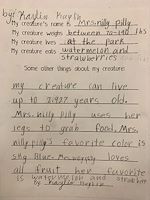 by: Kaylin Hayth
My creature's name is Mrs. nilly pilly
My creature weighs between 70-140 lbs
My creature lives at the park
My creature eats watermelon and
strawberries
Some other things about my creature:
my creature can live
up to 2,927 years old.
Mrs. nilly pilly uses her
legs to grab food. Mrs.
nilly pilly's favorite color is
sky Blue. Mrs. nilly pilly loves
all fruit her favorite
is watermelon and strawber
by Kaylin Hayth